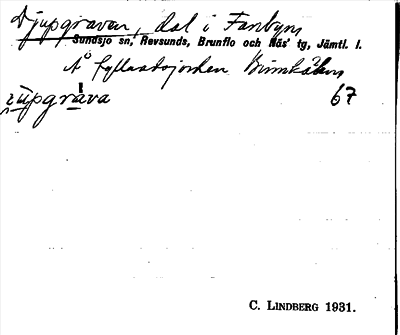 Djupgravan, dal i Fanbyn
Sundsjö sn, Revsunds, Brunflo och Näs' tg, Jämtl. l.
Å fyllastsjorden
júpgrava 67
C. LINDBERG 1931.